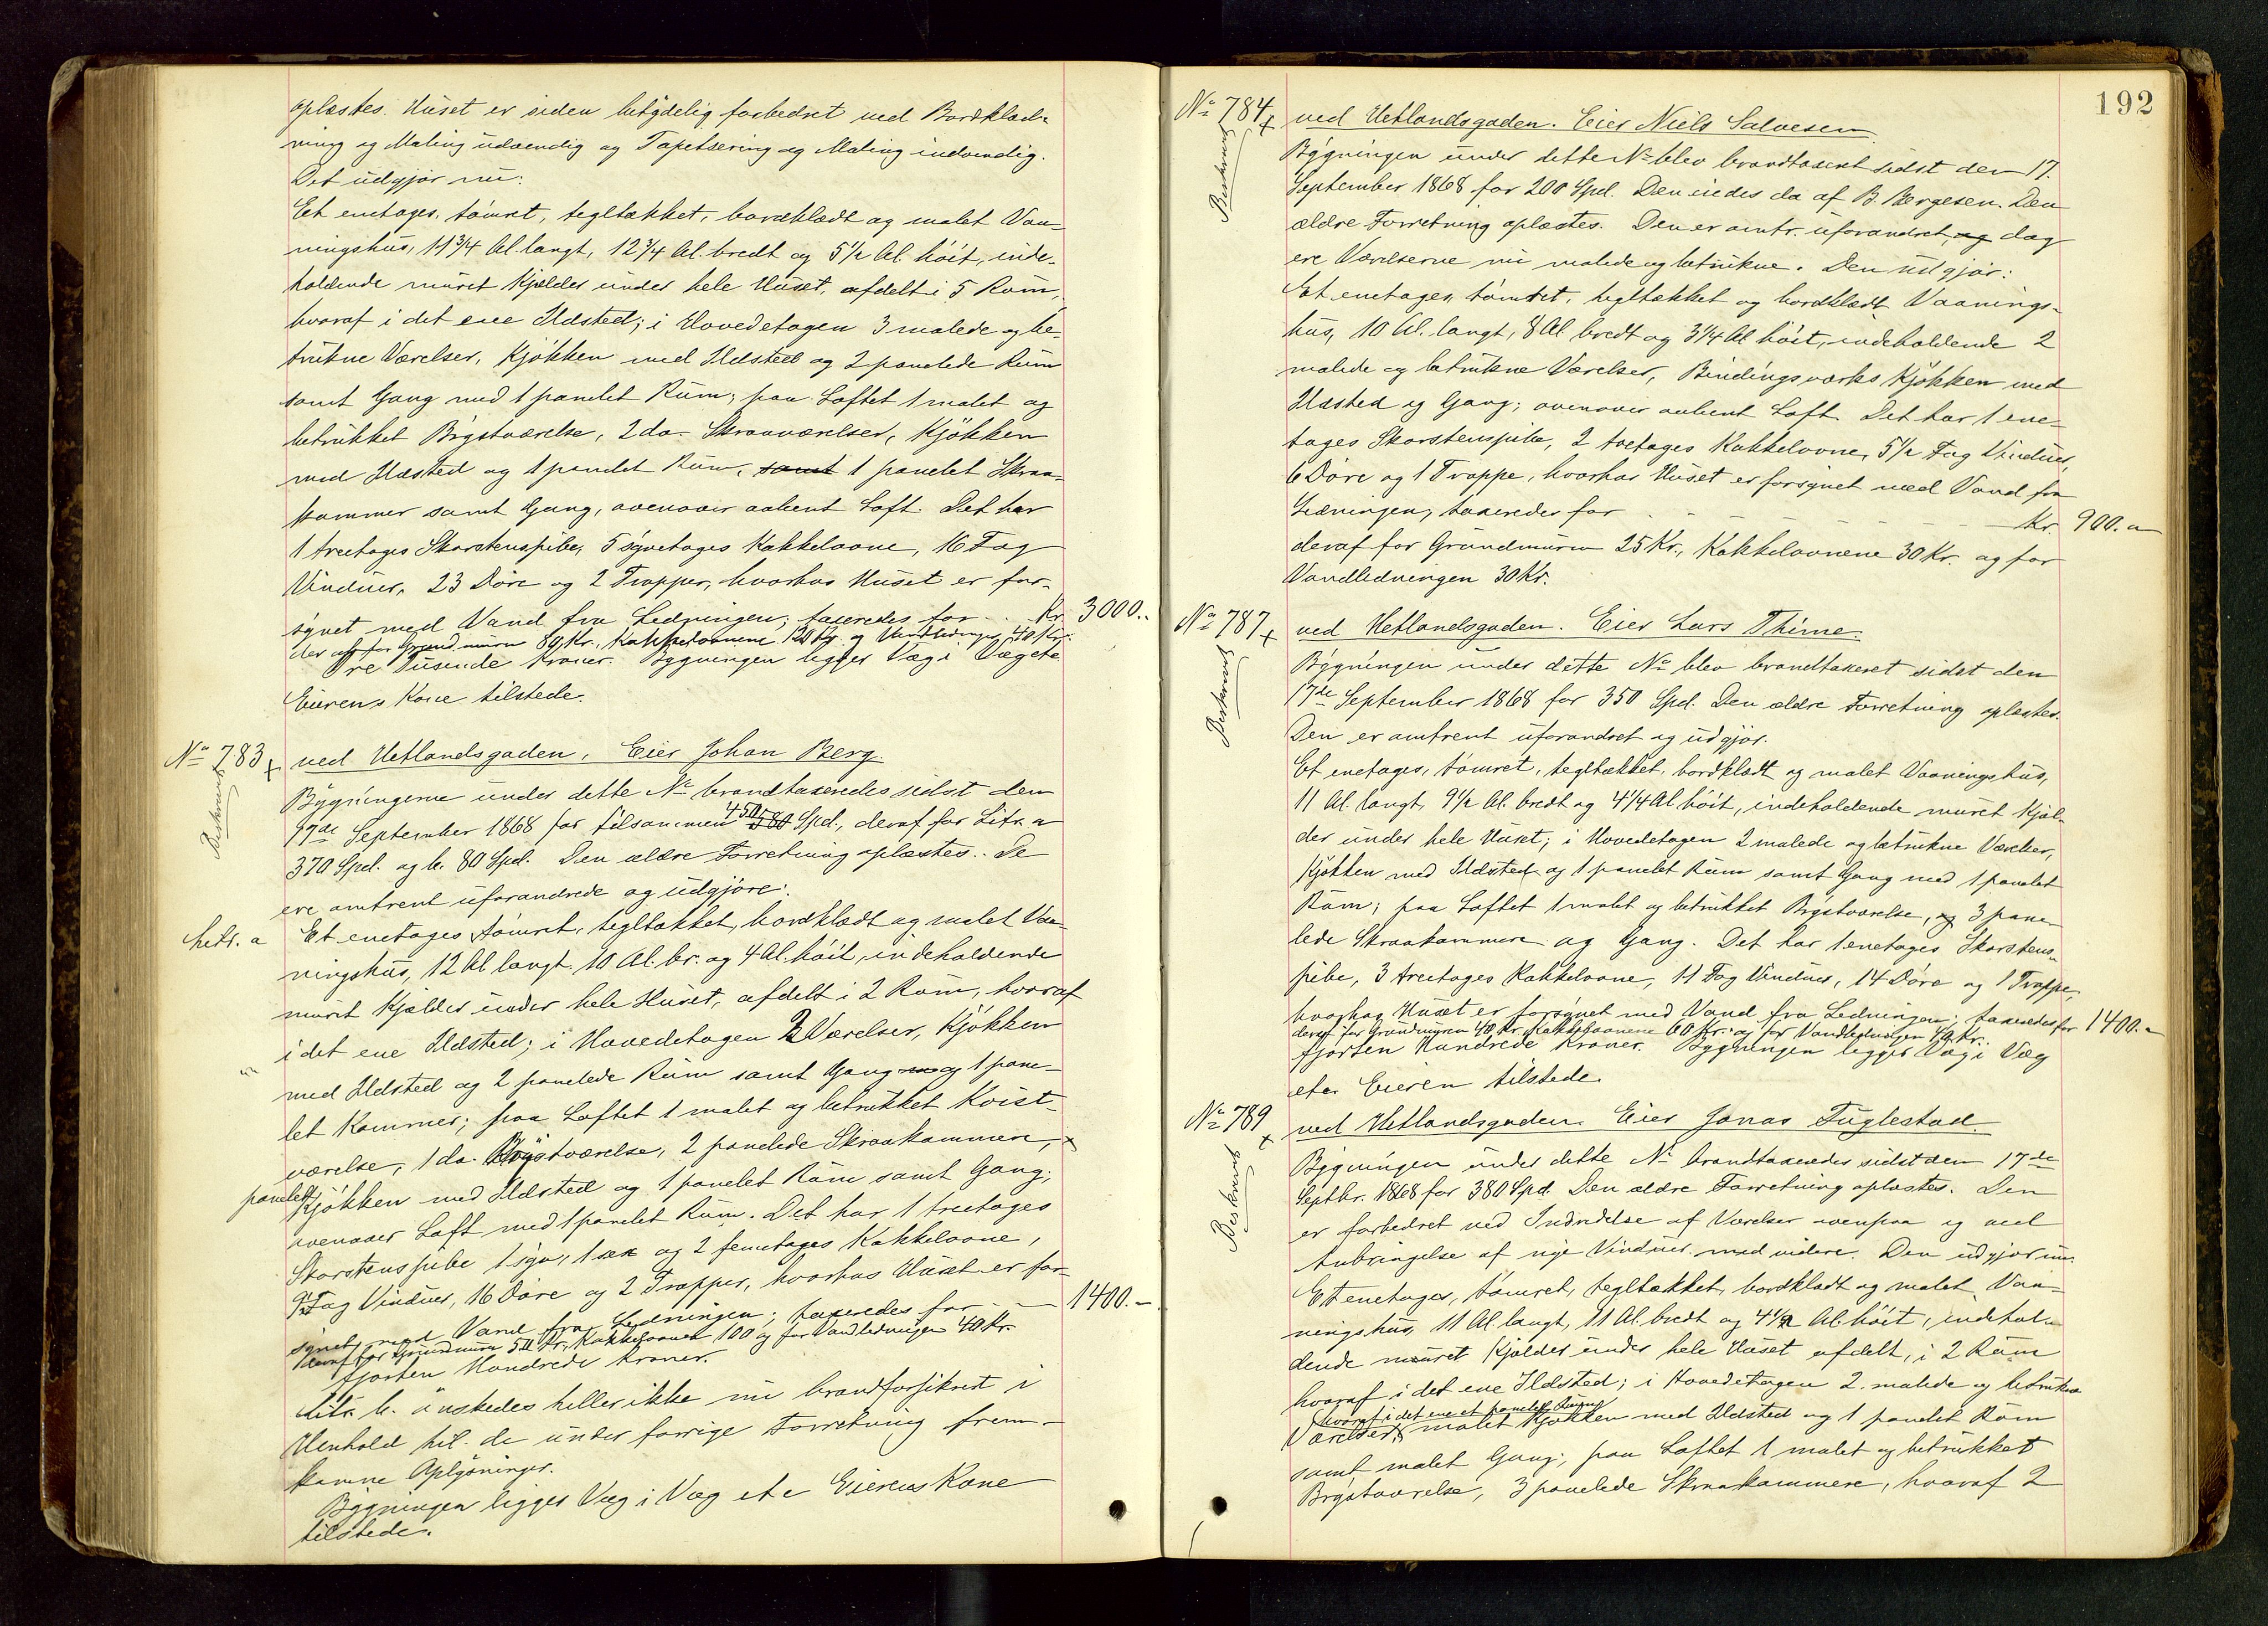 oplæstes. Huset er siden betydelig forbedret ved Bordklæd-
ning og Maling udvendig og Tapetsering og Maling indvendig.
Det udgjør nu:
Et enetages, tømret, tegltækket, bordklædt og malet Vaa-
ningshus, 11 3/4 Al. langt, 12 3/4 Al. bredt og 5 1/2 Al. høit, inde-
holdende muret Kjælder under hele Huset, afdelt i 5 Rum,
hvoraf i det ene Ildsted; i Hovedetagen 3 malede og be-
trukne Værelser, Kjøkken med Ildsted og 2 panelede Rum
samt Gang med 1 panelet Rum; paa Loftet 1 malet og
betrukket Brystværelse, 2 do. Skraaværelser, Kjøkken
med Ildsted og 1 panelet Rum, samt 1 panelet Skraa-
kammer samt Gang, ovenover aabent Loft. Det har
1 treetages Skorstenspibe, 5 syvetages Kakkelovne, 16 Fag
Vinduer, 23 Døre og 2 Trapper, hvorhos Huset er for-
synet med Vand fra Ledningen; taxeredes for - - Kr. 3000..
der af for Grundmuren 80 Kr., Kakkelovnene 130 Kr. og Vandledningen 40 Kr.
Tre Tusende Kroner. Bygningen ligger Væg i Væg etc
Eierens Kone tilstede.
No 783 + ved Hetlandsgaden, Eier Johan Berg.
Beskrevet
Bygningerne under dette No brandtaxeredes sidst den
17de September 1868 for tilsammen 450 580 Spd., deraf for Litr. a
370 Spd. og b. 80 Spd. Den ældre Forretning oplæstes. De
ere omtrent uforandrede og udgjøre:
Litr. a Et enetages, tømret, tegltækket, bordklædt og malet Vaa-
ningshus, 12 Al. langt, 10 Al. br. og 4 Al. høit, indeholdende
muret Kjælder under hele Huset, afdelt i 2 Rum, hvoraf
i det ene Ildsted; i Hovedetagen 2 Værelser, Kjøkken
med Ildsted og 2 panelede Rum samt Gang og 1 pane-
let Kammer; paa Loftet 1 malet og betrukket Kvist-
værelse, 1 do. Brystværelse, 2 panelede Skraakammere, x
panelet Kjøkken med Ildsted og 1 panelet Rum samt Gang;
ovenover Loft med 1 panelet Rum. Det har 1 treetages
Skorstenspibe 1 syv, 1 sex og 2 femetages Kakkelovne,
9 Fag Vinduer, 16 Døre og 2 Trapper, hvorhos Huset er for-
synet med Vand fra Ledningen; taxeredes for - - 1400.-
deraf for Grundmuren 50 Kr., Kakkelovnene 100 og for Vandledningen 40 Kr.
fjorten Hundrede Kroner.
Litr. b. ønskedes heller ikke nu brandforsikret i
Henhold til de under forrige Forretning frem-
komne Oplysninger.
Bygningen ligger Væg i Væg etc Eierens Kone
tilstede.
192
No 784 + ved Hetlandsgaden. Eier Niels Salvesen
Beskrevet
Bygningen under dette No blev brandtaxert sidst den 17.
September 1868 for 200 Spd. Den eiedes da af B. Børgesen. Den
ældre Forretning oplæstes. Den er omtr. uforandret, og dog
ere Værelserne nu malede og betrukne. Den udgjør:
Et enetages, tømret, tegltækket og bordklædt Vaanings-
hus, 10 Al. langt, 8 Al. bredt og 3 1/4 Al. høit, indeholdende 2
malede og betrukne Værelser, Bindingsværks Kjøkken med
Ildsted og Gang; ovenover aabent Loft. Det har 1 ene-
tages Skorstenspibe, 2 toetages Kakkelovne, 5 1/2 Fag Vinduer,
6 Døre og 1 Trappe, hvorhos Huset er forsynet med Vand fra
Ledningen, taxeredes for - - - - - Kr. 900.-
deraf for Grundmuren 25 Kr., Kakkelovnene 30 Kr. og for
Vandledningen 30 Kr.
No 787 + ved Hetlandsgaden. Eier Lars Thime.
Beskrevet
Bygningen under dette No blev brandtaxeret sidst den
17de September 1868 for 350 Spd. Den ældre Forretning oplæstes.
Den er omtrent uforandret og udgjør.
Et enetages, tømret, tegltækket, bordklædt og malet Vaaningshus,
11 Al. langt, 9 1/2 Al. bredt og 4 1/4 Al. høit, indeholdende muret Kjæl-
der under hele Huset; i Hovedetagen 2 malede og betrukne Værelser,
Kjøkken med Ildsted og 1 panelet Rum samt Gang med 1 panelet
Rum; paa Loftet 1 malet og betrukket Brystværelse, og 3 pane-
lede Skraakammere og Gang. Det har 1 enetages Skorstens-
pibe, 3 treetages Kakkelovne, 11 Fag Vinduer, 14 Døre og 1 Trappe,
hvorhos Huset er forsynet med Vand fra Ledningen; taxeredes for 1400.-
deraf for Grundmuren 40 Kr. Kakkelovnene 60 Kr. og for Vandledningen 40 Kr.
fjorten Hundrede Kroner. Bygningen ligger Væg i Væg
etc. Eieren tilstede.
No 789 + ved Hetlandsgaden. Eier Jonas Fuglestad.
Beskrevet
Bygningen under dette No brandtaxeredes sidst den 17de
Septbr. 1868 for 380 Spd. Den ældre Forretning oplæstes. Den
er forbedret ved Indredelse af Værelser ovenpaa og ved
Anbringelse af nye Vinduer med videre. Den udgjør nu:
Et enetages, tømret, tegltækket, bordklædt og malet Vaa-
ningshus, 11 Al. langt, 11 Al. bredt og 4 1/2 Al. høit, indehol-
dende muret Kjælder under hele Huset afdelt i 2 Rum
hvoraf i det ene Ildsted; i Hovedetagen 2 malede og betrukne
hvoraf i det ene et panelet Rum
Værelser, malet Kjøkken med Ildsted og 1 panelet Rum
samt malet Gang; paa Loftet 1 malet og betrukket
Brystværelse, 3 panelede Skraakammere, hvoraf 2